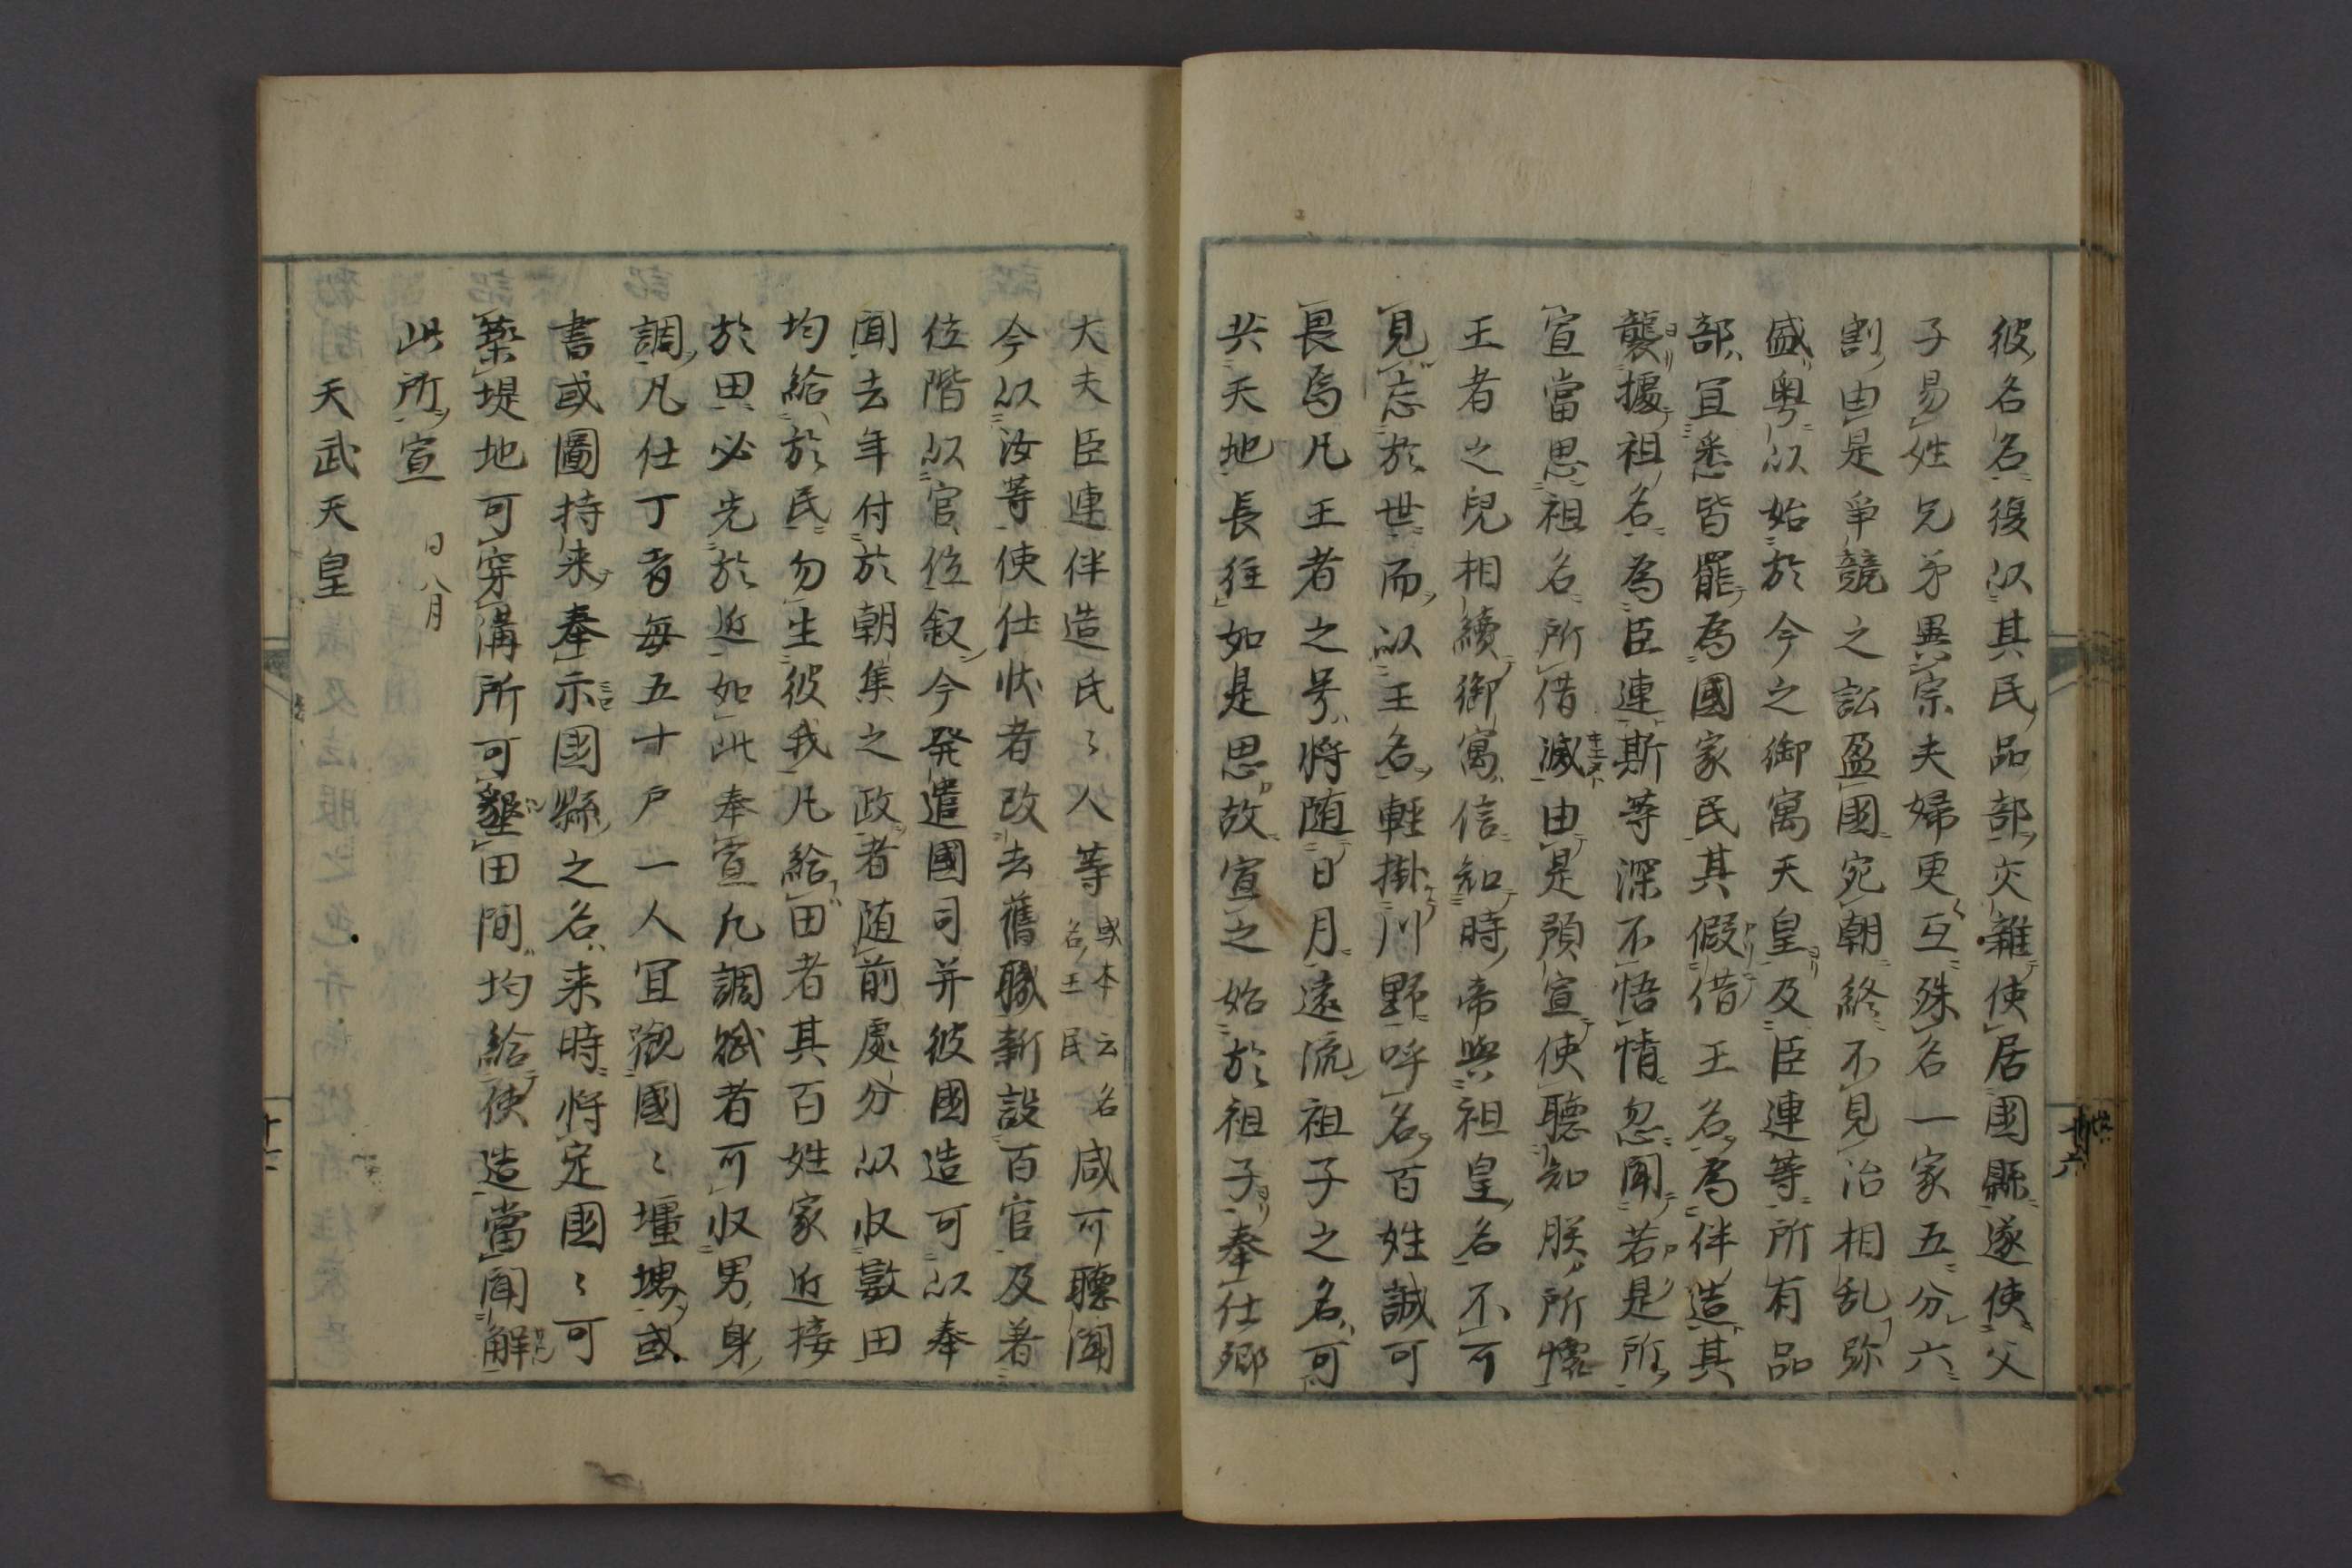 彼名名復以其民品部交雑使居國縣遂使父
子易姓兄弟異宗夫婦更互殊名一家五分六
割由是爭競之訟盈國宛朝終不見治相乱弥
盛粤以始於今之御寓天皇及臣連等所有品
部宜悉皆罷為國家民其假借王名為伴造其
襲據祖名為臣連斯等深不悟情忽聞若是所
宣當思祖名所借滅由是預宣使聽知朕所懐
王者之兒相續御寓信知時帝與祖皇名不可
見忘於世而以王名輕掛川野呼名百姓誠可
畏焉凡王者之号將随日月遠流祖子之名可
共天地長往如是思故宣之始於祖子奉仕郷
大夫臣連伴造氏々人等 或本云名名王民 咸可聽聞
今以汝等使仕状者改去舊職新設百官及著
位階以官位叙今発遣國司并彼國造可以奉
聞去年付於朝集之政者随前處分以収数田
均給於民勿生彼我凡給田者其百姓家近接
於田必先於近如此奉宣凡調賦者可収男身
調凡仕丁者毎五十戸一人宜觀國々壃堺或
書或圖持来奉示國縣之名来時將定國々可
築堤地可穿溝所可墾田間均給使造當聞解
此所宣 日八月
天武天皇